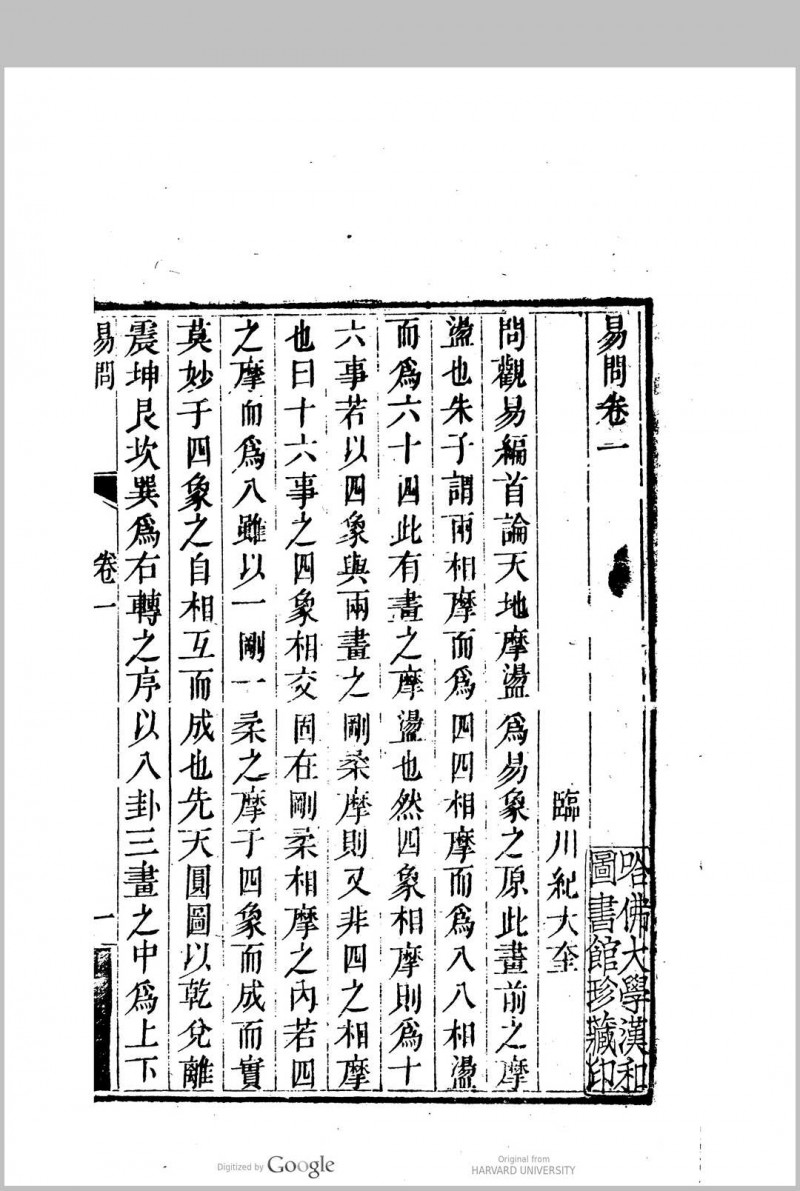 易問卷一
臨川紀大奎
問觀易編首論天地摩盪爲易象之原此畫前之摩
盪也朱子謂兩相摩而爲四四相摩而爲八八相盪
而爲六十四此有畫之摩盪也然四象相摩則爲十
六事若以四象與兩畫之剛柔摩則又非四之相摩
也曰十六事之四象相交固在剛柔相摩之內若四
之摩而爲八雖以一剛一柔之摩于四象而成而實
莫妙于四象之自相互而成也先天圓圖以乾兌離
震坤艮坎巽爲右轉之序以八卦三畫之中爲上下
易問
卷一
一
哈佛大學漢和
圖書館珍藏印
Digitized by Google
Original from
HARVARD UNIVERSITY